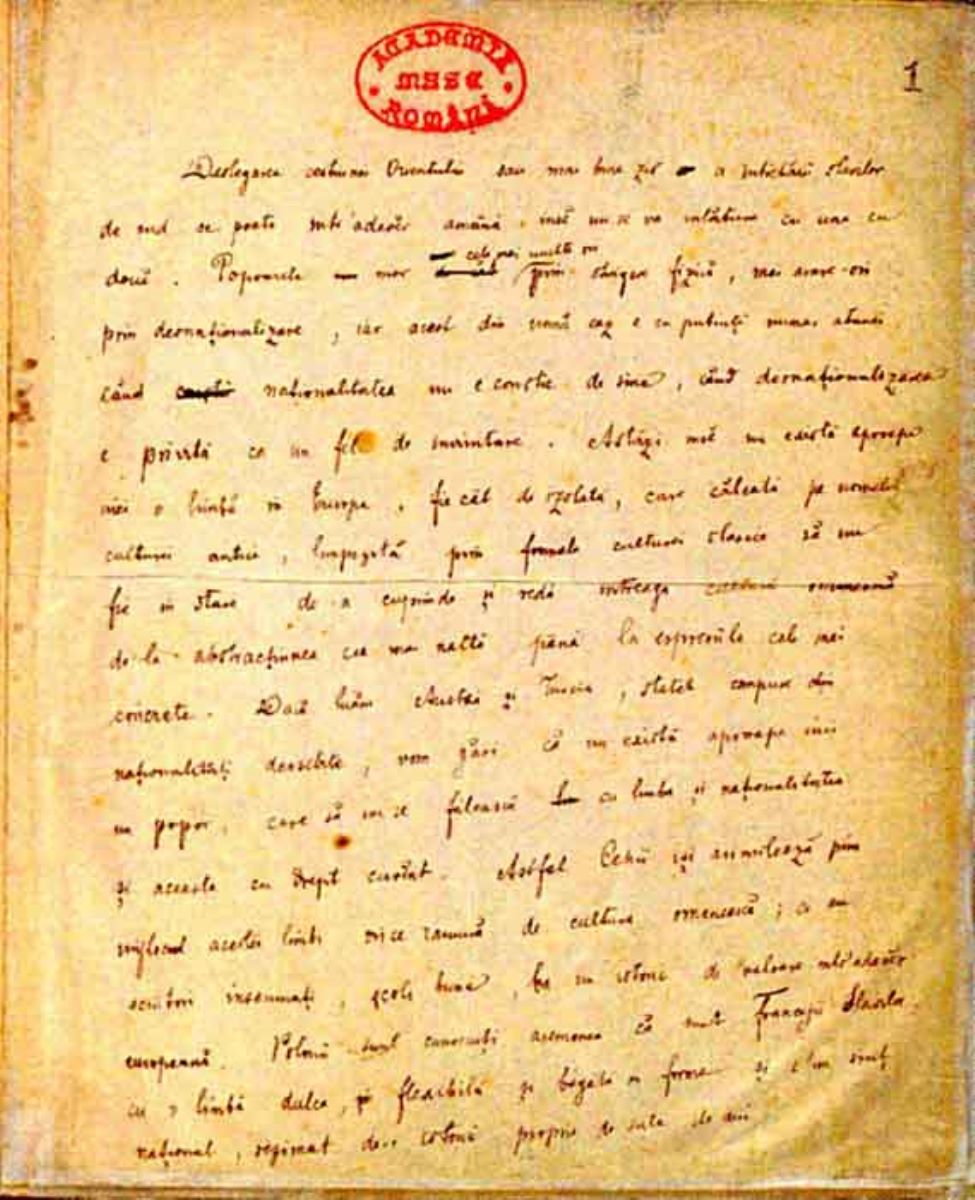 ACADEMIA
ROMÂNĂ
1
Deslegarea cestiunei Orientului sau mai bine zis a slavilor
de sud se poate într'adevăr amâna, însă nu se va înlătura cu una cu
două. Popoarele mor cele mai multe ori prin stingere fizică, mai arare-ori
prin deznaționalizare, iar acest din urmă caz e cu putință numai atunci
când naționalitatea nu e conștie de sine, când deznaționalizarea
e privită ca un fel de înaintare. Astăzi însă nu există aproape
nici o limbă în Europa, fie cât de izolată, care călcată pe urmele
culturei antice, limpezită prin formele culturei clasice să nu
fie în stare de-a cuprinde și reda întreaga omenească
de la abstracțiunea cea mai naltă până la espresiile cele mai
concrete. Dacă luăm Austria și Turcia, statele compuse din
naționalități deosebite, vom găsi că nu există aproape nici
un popor, care să nu se fălească cu limba și naționalitatea
și aceasta cu drept cuvânt. Astfel Cehii își asimilează prin
mijlocul acestei limbi orice ramură de cultura omenească; ei au
scriitori însemnați, școli bune, ba un istoric de valoare într'adevăr
europeană. Polonii sunt cunoscuți asemenea că sunt Francejii Slavilor,
cu o limbă dulce, flexibilă și bogată în forme și c'un simț
național, de o istorie proprie de sute de ani